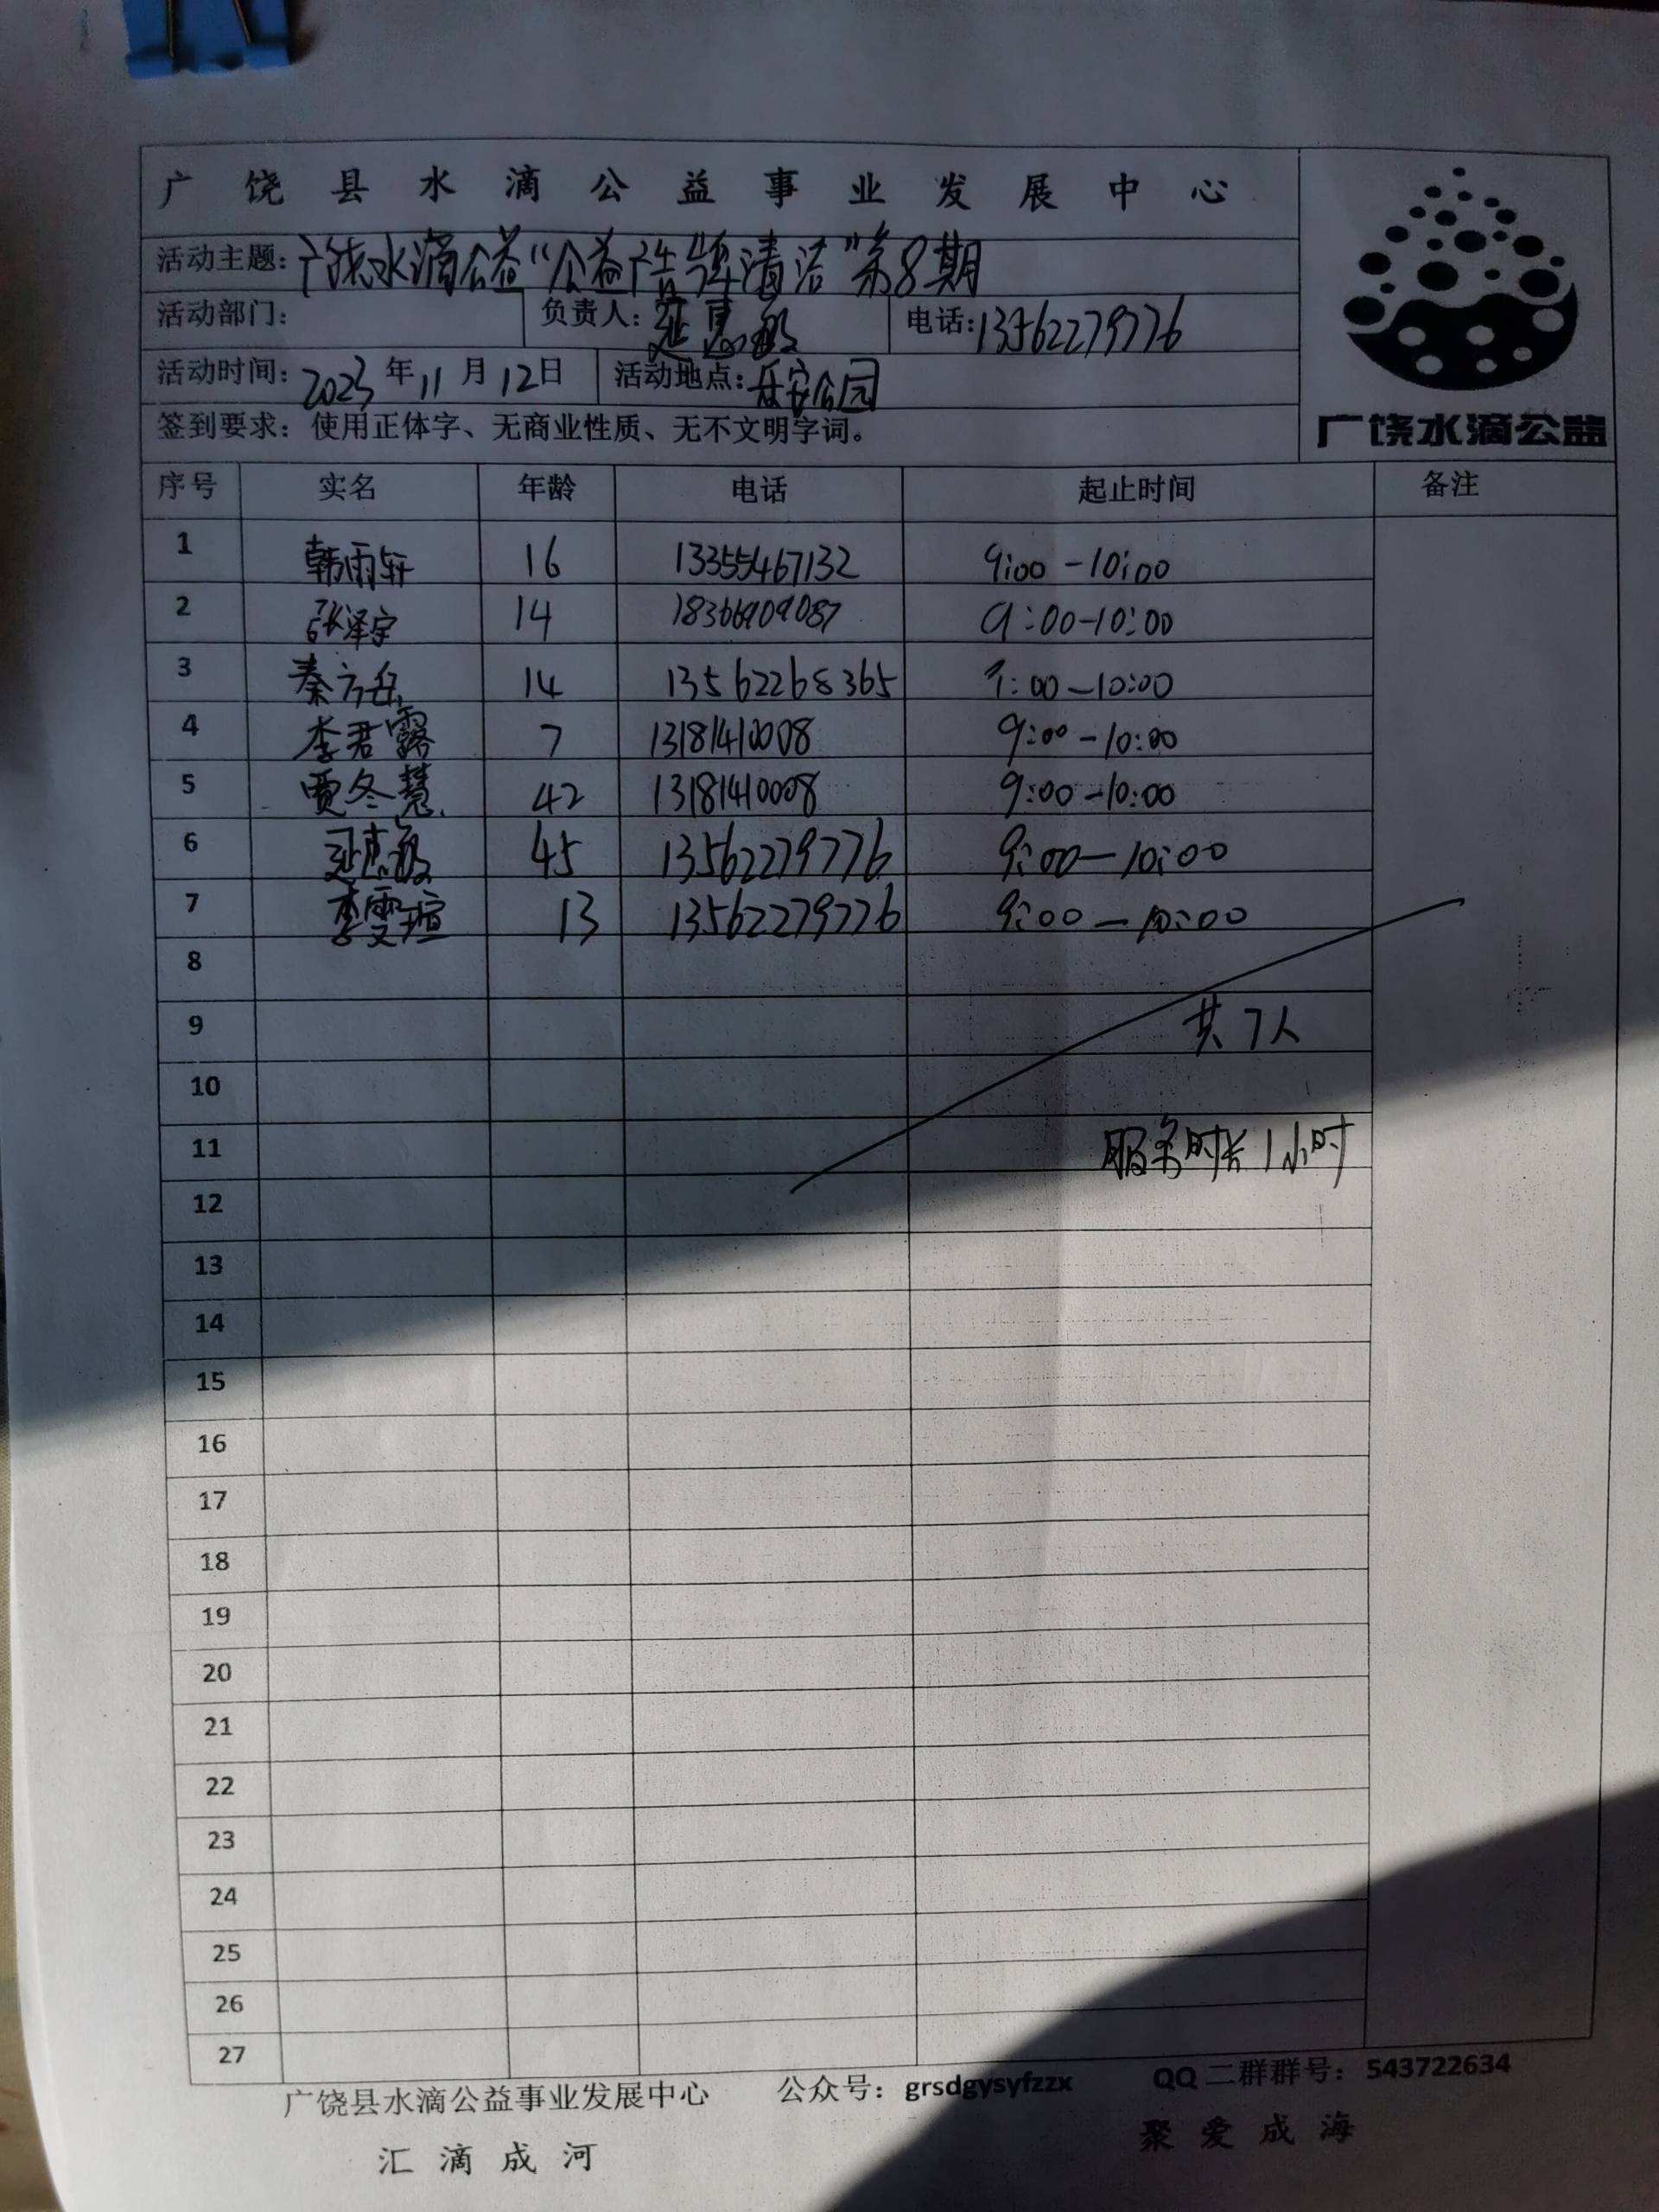 广饶县水滴公益事业发展中心
活动主题：广饶水滴公益“公益广告牌清洁”第8期
活动部门： 负责人：延惠敏 电话：13562279776
活动时间：2023年11月12日 活动地点：乐安公园
签到要求：使用正体字、无商业性质、无不文明字词。
广饶水滴公益
序号 实名 年龄 电话 起止时间 备注
1 韩雨轩 16 13355467132 9:00-10:00
2 张泽宇 14 18366909087 9:00-10:00
3 秦方岳 14 13562268365 9:00-10:00
4 李君露 7 13181410008 9:00-10:00
5 贾冬慧 42 13181410008 9:00-10:00
6 延惠敏 45 13562279776 9:00-10:00
7 李雯瑄 13 13562279776 9:00-10:00
8
9 共7人
10
11 服务时长1小时
12
13
14
15
16
17
18
19
20
21
22
23
24
25
26
27
广饶县水滴公益事业发展中心 公众号：grsdgysyfzzx QQ二群群号：543722634
汇滴成河 聚爱成海